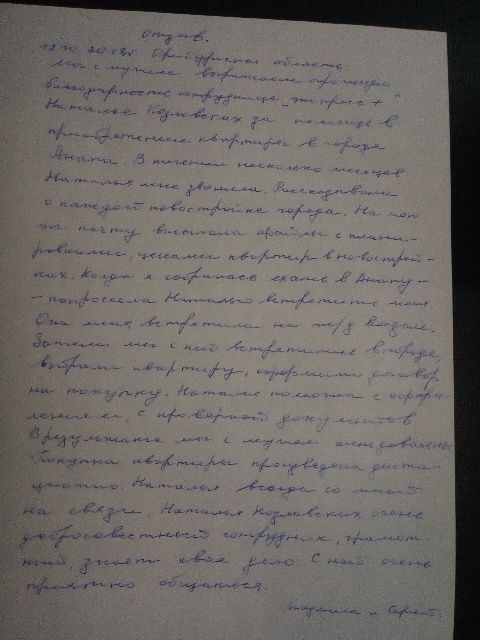 отзыв.
12.10.2018г Оренбургская область.
Мы с мужем выражаем огромную
благодарность сотруднице "экспресс+"
Наталье Козловских за помощь в
приобретение квартиры в городе
Анапа. В течении несколько месяцев
Наталья мне звонила. Рассказывала
о каждой новостройке города. На мою
эл. почту высылала файлы с плани-
ровками, ценами квартир в новострой-
ках. Когда я собралась ехать в Анапу -
- попросила Наталью встретить меня.
Она меня встретила на ж/д вокзале.
Затем мы с ней встретились в городе,
выбрали квартиру, оформили договор
на покупку. Наталья помогла с оформ-
лением, с проверкой документов
В результате мы с мужем очень довольны
Покупка квартиры произведена диста-
ционно. Наталья всегда со мной
на связи. Наталья Козловских очень
добросовестный сотрудник, грамот-
ный, знает своё дело. С ней очень
приятно общаться.
Людмила и Сергей.